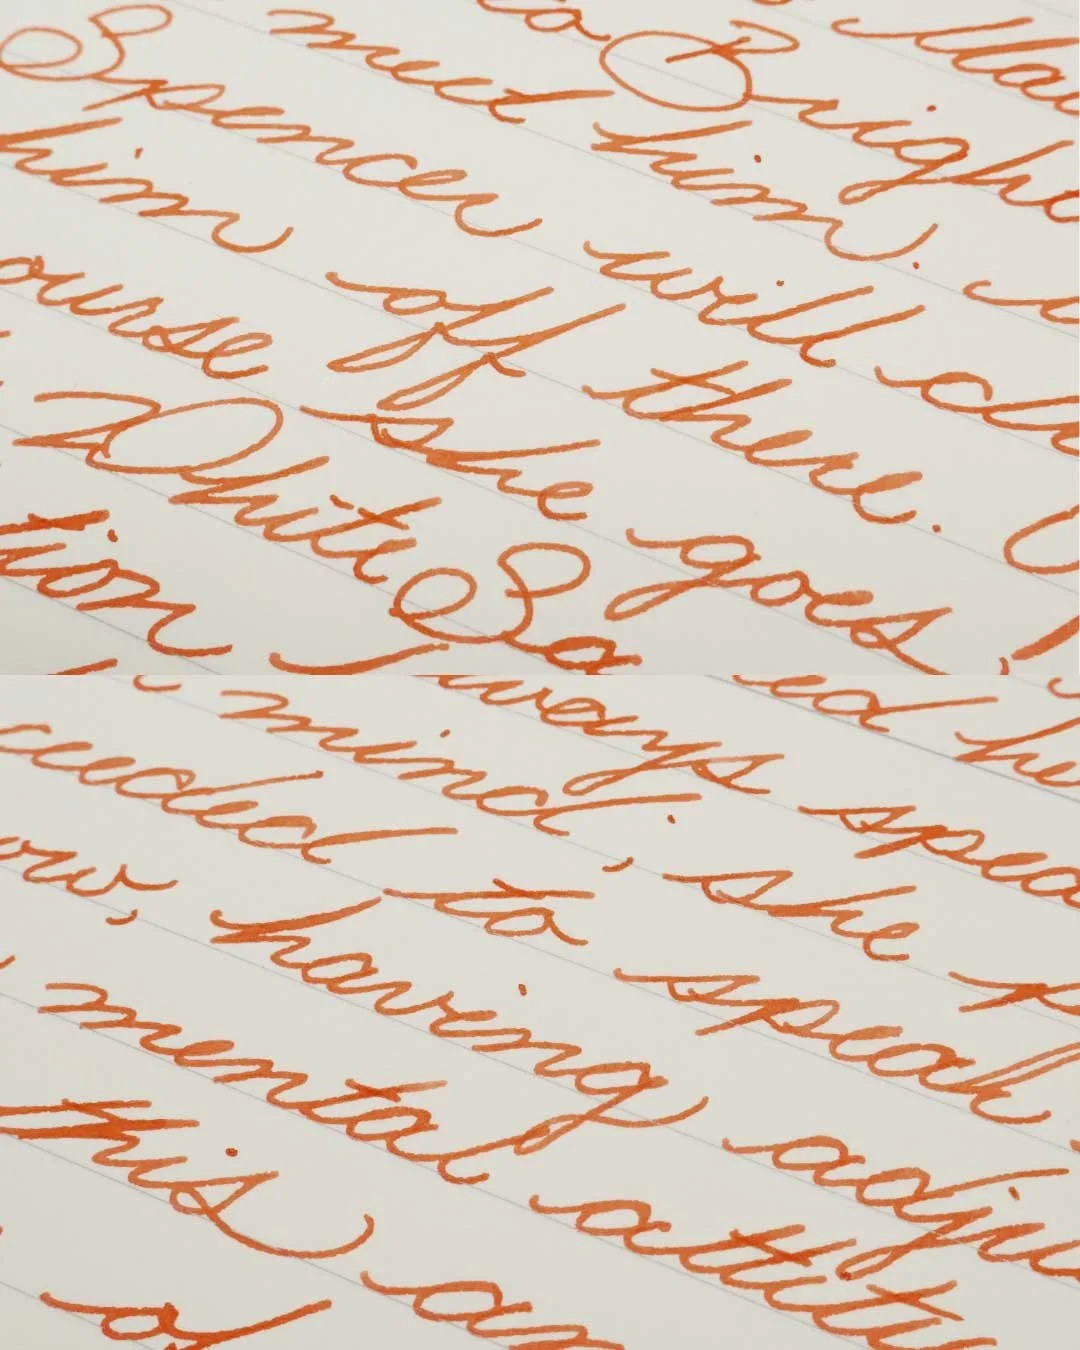 Ma
to Brigh
meet him.
Spencer will
him off there.
ourse she goes
White Sa
tion
ed he
ways spea
mind', she
ceeded to speak
ow, having adju
mental attitu
this an